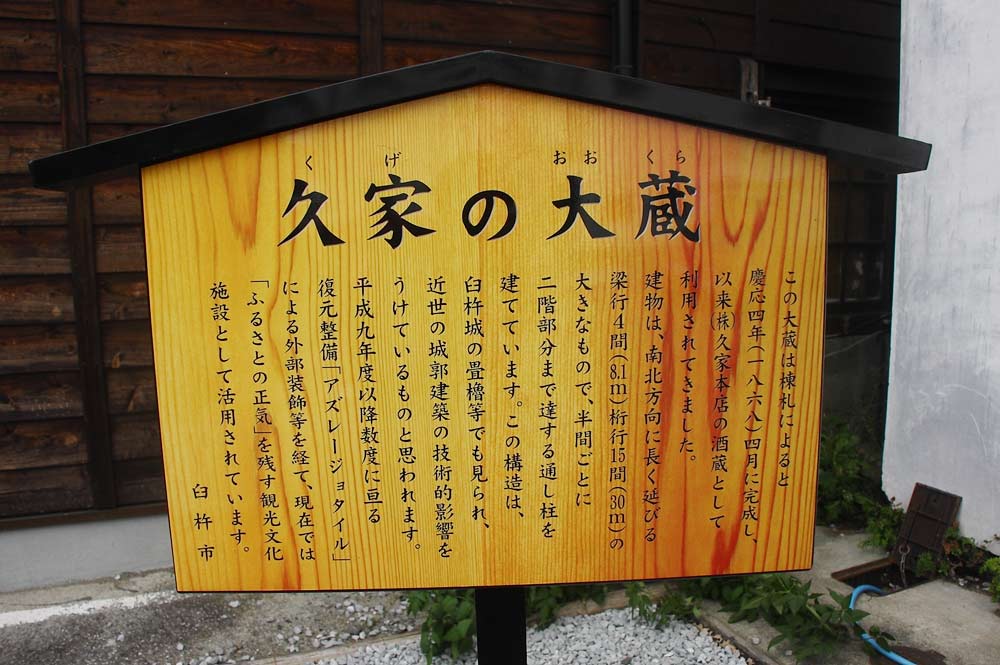 久家の大蔵
くげ おおくら
この大蔵は棟札によると
慶応四年(一八六八)四月に完成し、
以来(株)久家本店の酒蔵として
利用されてきました。
建物は、南北方向に長く延びる
梁行4間(8.1m)桁行15間(30m)の
大きなもので、半間ごとに
二階部分まで達する通し柱を
建てています。この構造は、
臼杵城の畳櫓等でも見られ、
近世の城郭建築の技術的影響を
うけているものと思われます。
平成九年度以降数度に亘る
復元整備「アズレージョタイル」
による外部装飾等を経て、現在では
「ふるさとの正気」を残す観光文化
施設として活用されています。
臼杵市